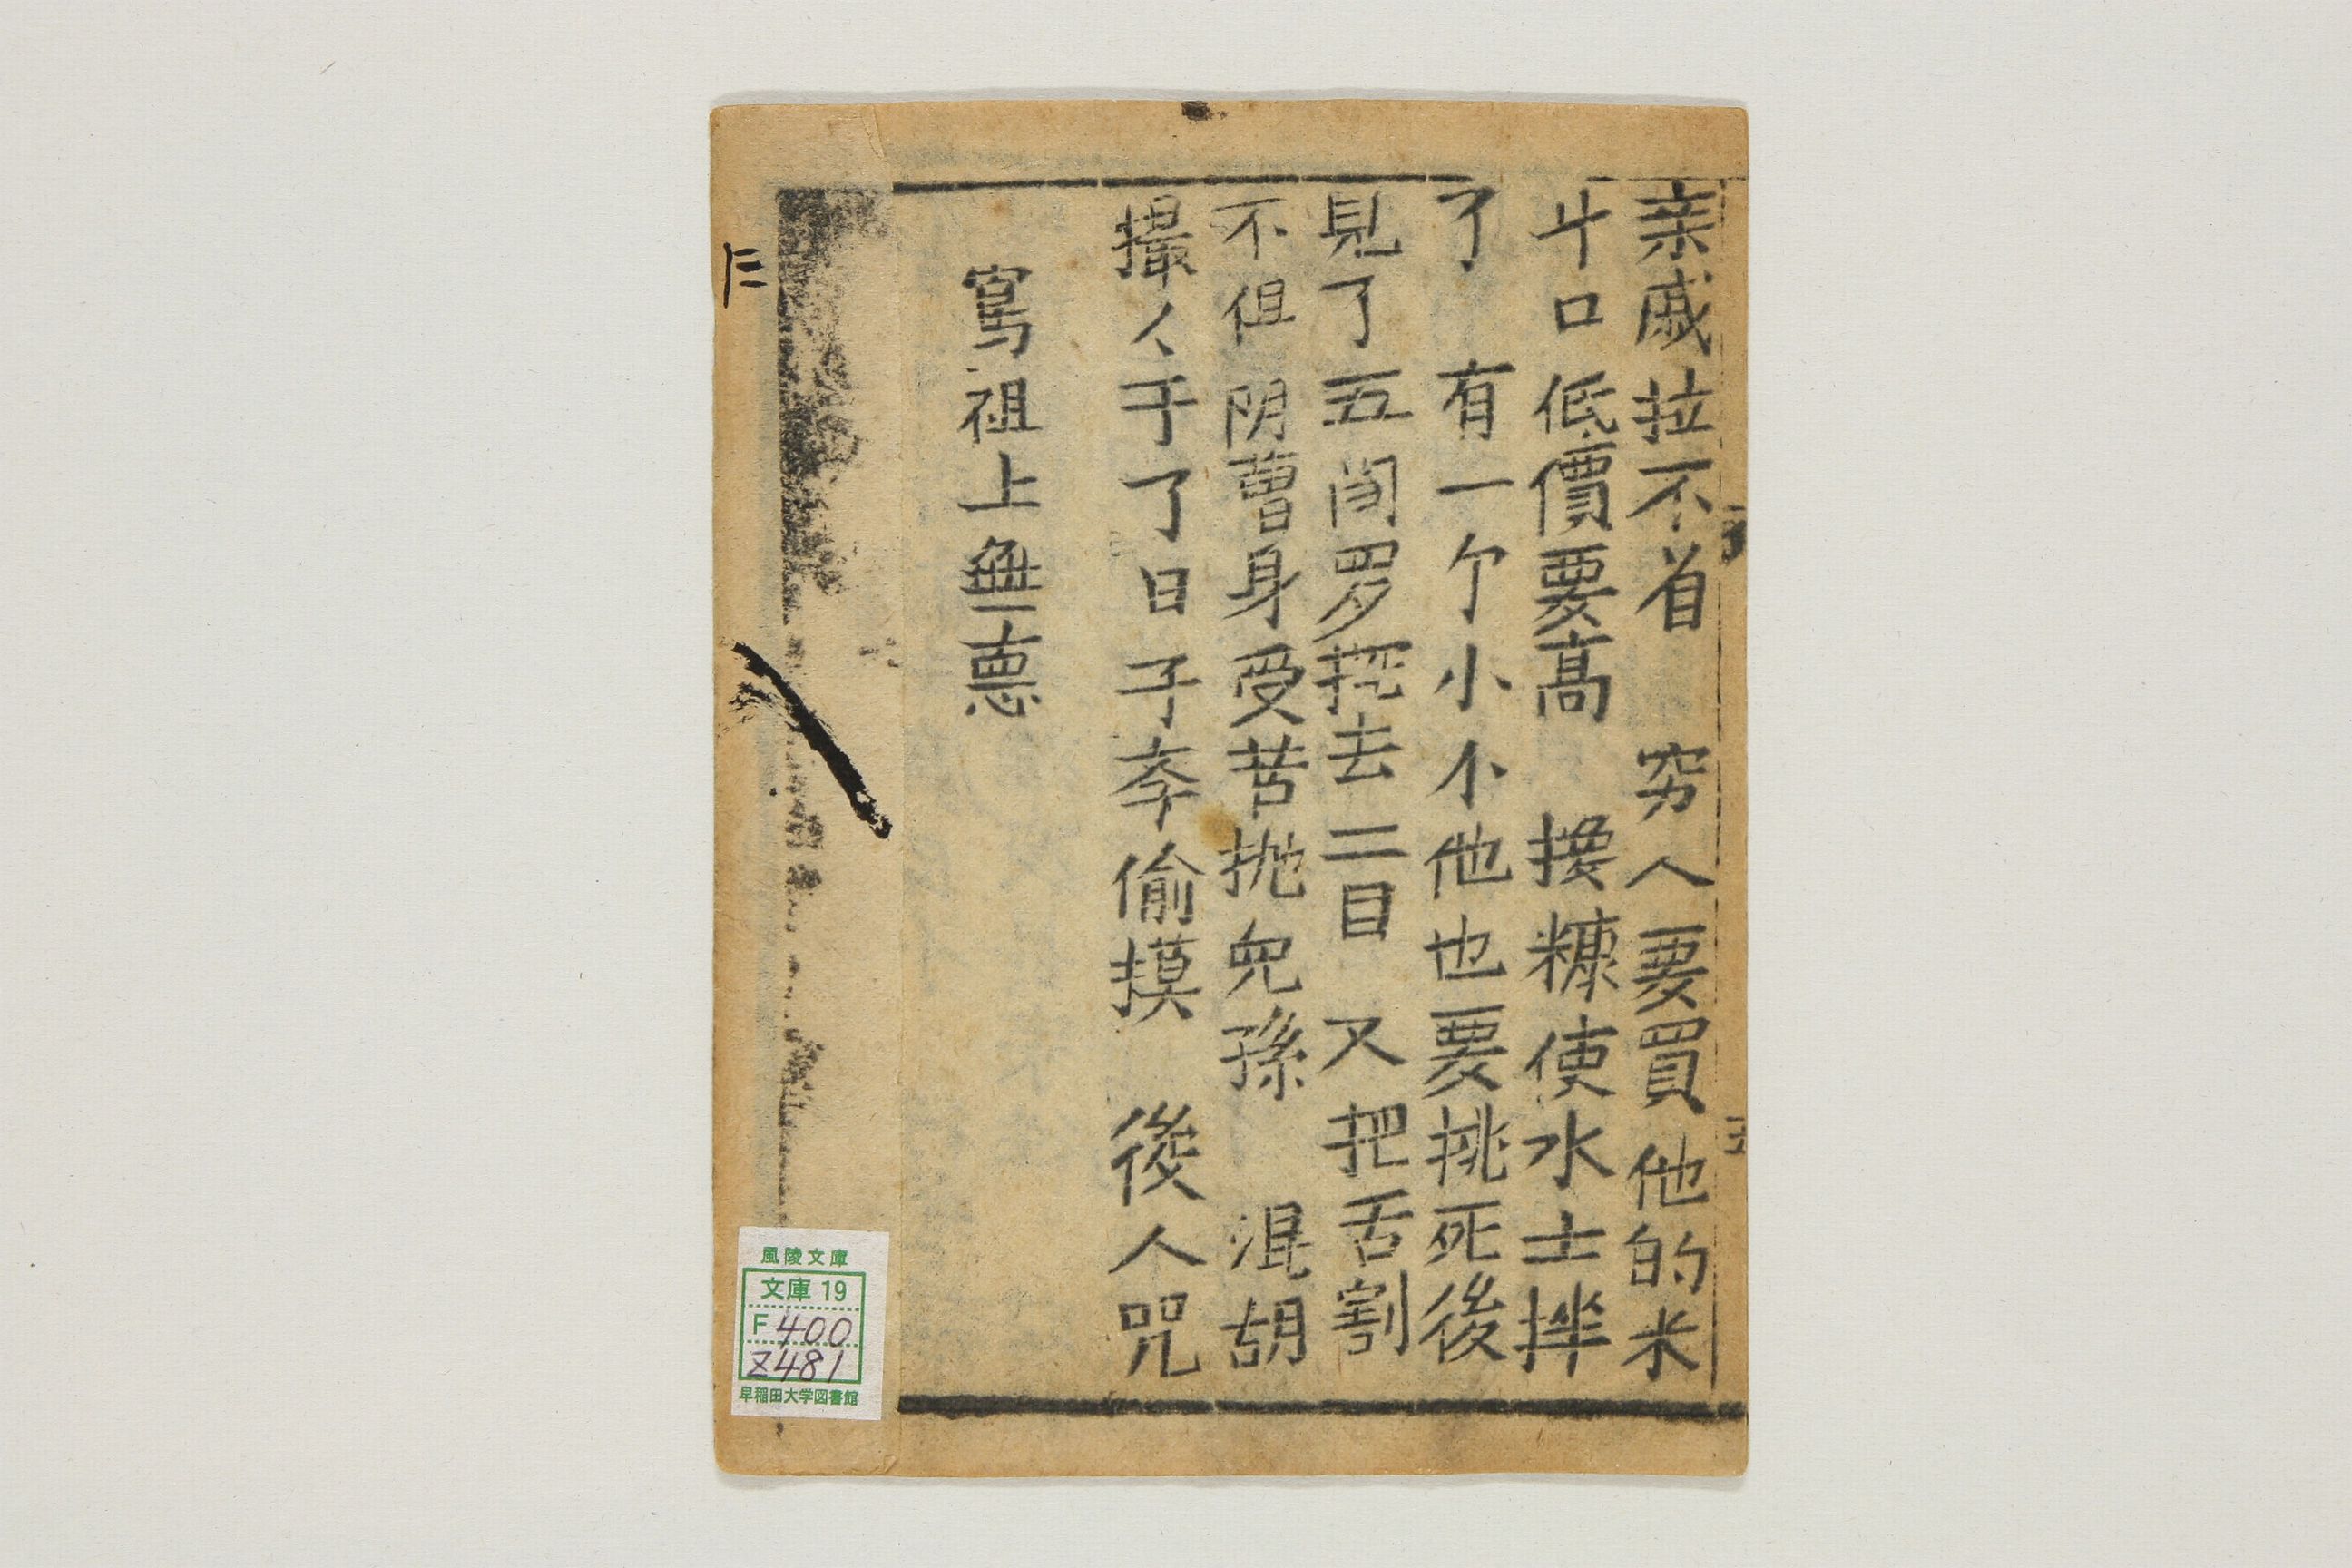 亲戚拉不着　穷人要買他的米
斗口低價要高　換糠使水土拌
了　有一个小小他也要挑死後
見了五阎罗挖去二目　又把舌割
不但阴曹身受苦抛兜孫　混胡
撮人于了日子夲偷摸　後人咒
寫祖上無德
仨
風陵文庫
文庫 19
F 400
Z481
早稲田大学図書館